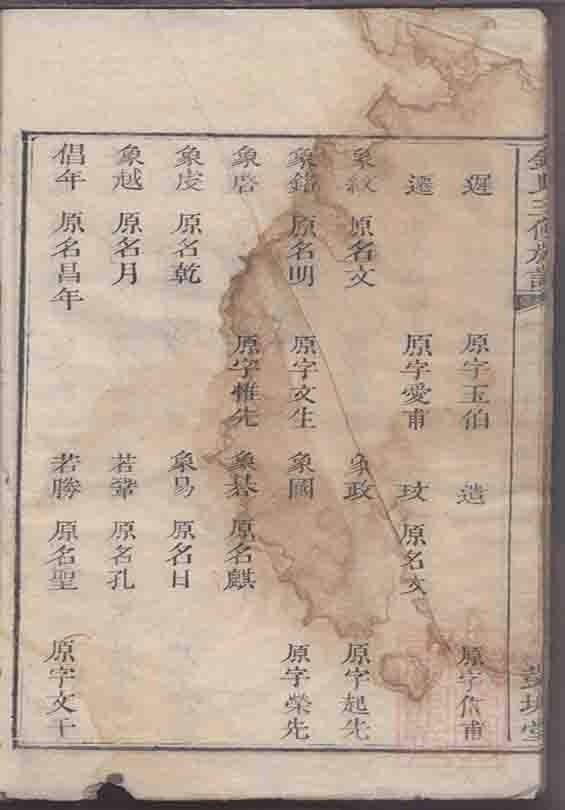 遲 原字玉伯 造 原字信甫
遷 原字愛甫 玟 原名文
象紋 原名文 象政 原字起先
象銘 原名明 原字文生 象國 原字榮先
象磨 原字惟先 象棊 原名麒
象虔 原名乾 象易 原名日
象越 原名月 若鞏 原名孔
倡年 原名昌年 若勝 原名聖 原字文干
三修族譜
堂